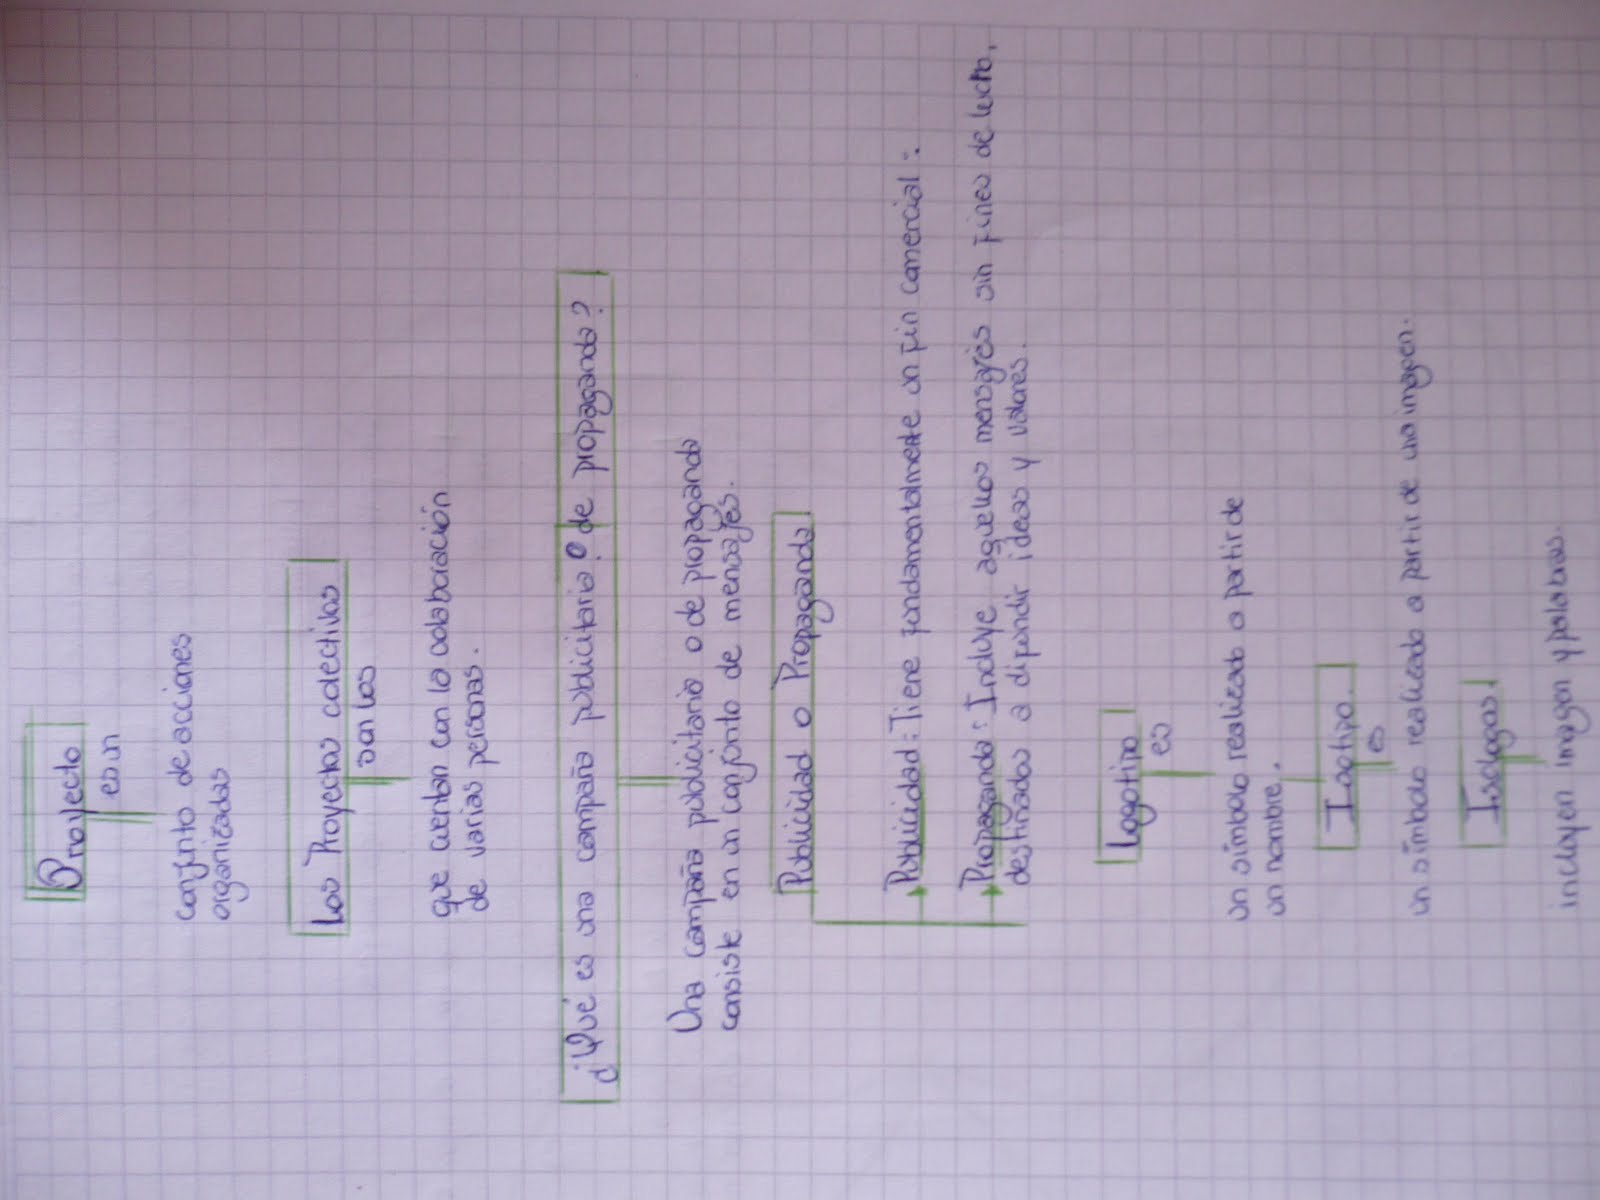 Proyecto
es un
conjunto de acciones
organizadas
Los Proyectos colectivos
son los
que cuentan con la colaboración
de varias personas.
¿Qué es una campaña publicitaria? o de propaganda?
Una campaña publicitaria o de propaganda
consiste en un conjunto de mensajes.
Publicidad o Propaganda
Publicidad: Tiene fundamentalmente un fin comercial:
Propaganda: Incluye aquellos mensajes sin fines de lucro,
destinados a difundir ideas y valores.
Logotipo
es
un símbolo realizado a partir de
un nombre.
Isotipo.
es
un símbolo realizado a partir de una imagen.
Isologos.
incluyen imagen y palabras.